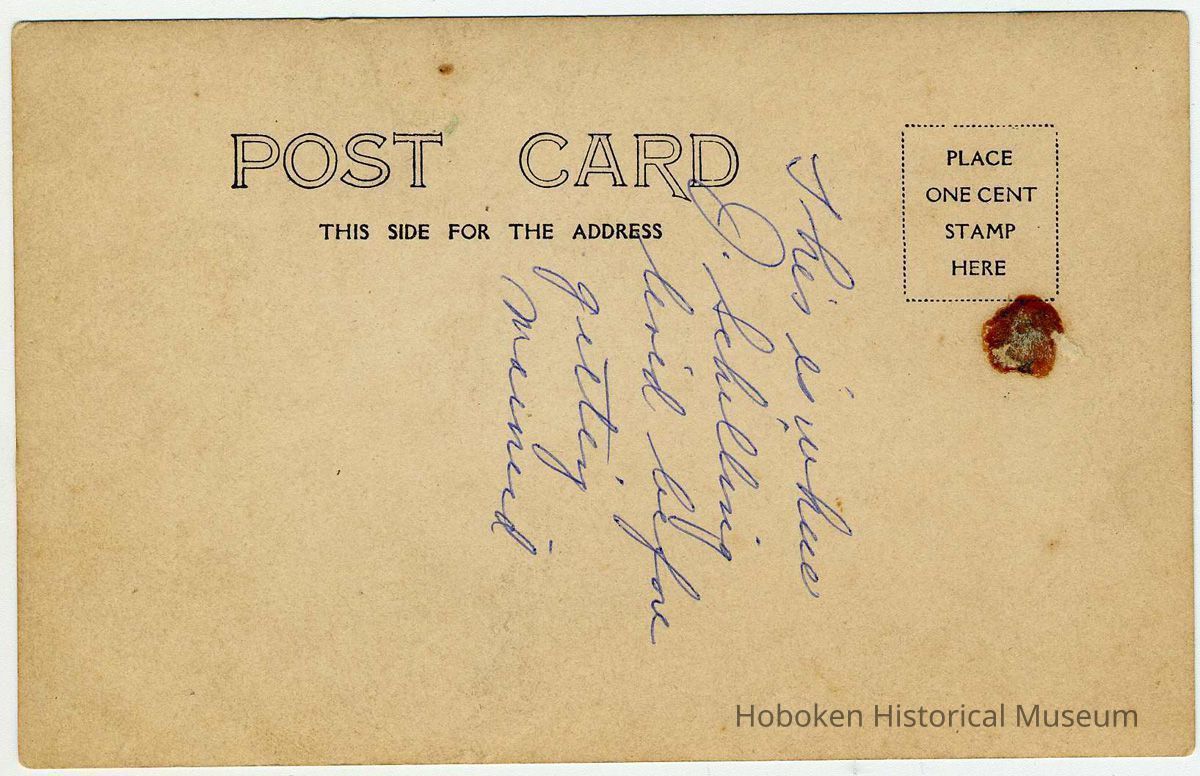 POST CARD
THIS SIDE FOR THE ADDRESS
PLACE
ONE CENT
STAMP
HERE
This is where
O. Schilling
lived before
getting
married
Hoboken Historical Museum